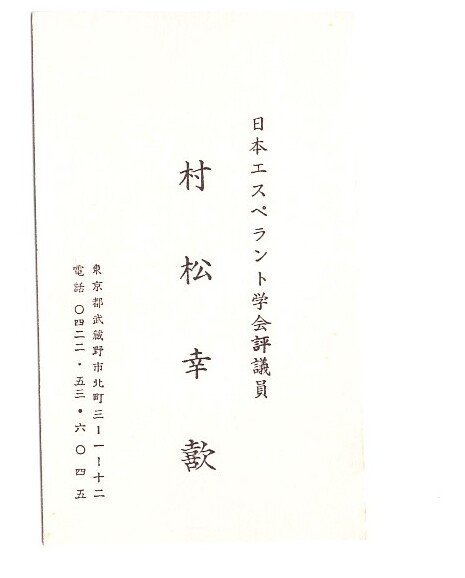 日本エスペラント学会評議員
村松幸歡
東京都武蔵野市北町三ー一ー十二
電話〇四二二・五三・六〇四五